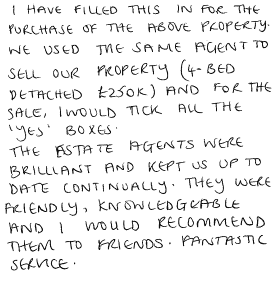 I HAVE FILLED THIS IN FOR THE
PURCHASE OF THE ABOVE PROPERTY.
WE USED THE SAME AGENT TO
SELL OUR PROPERTY (4-BED
DETACHED £250K) AND FOR THE
SALE, I WOULD TICK ALL THE
'YES' BOXES.
THE ESTATE AGENTS WERE
BRILLIANT AND KEPT US UP TO
DATE CONTINUALLY. THEY WERE
FRIENDLY, KNOWLEDGEABLE
AND I WOULD RECOMMEND
THEM TO FRIENDS. FANTASTIC
SERVICE.